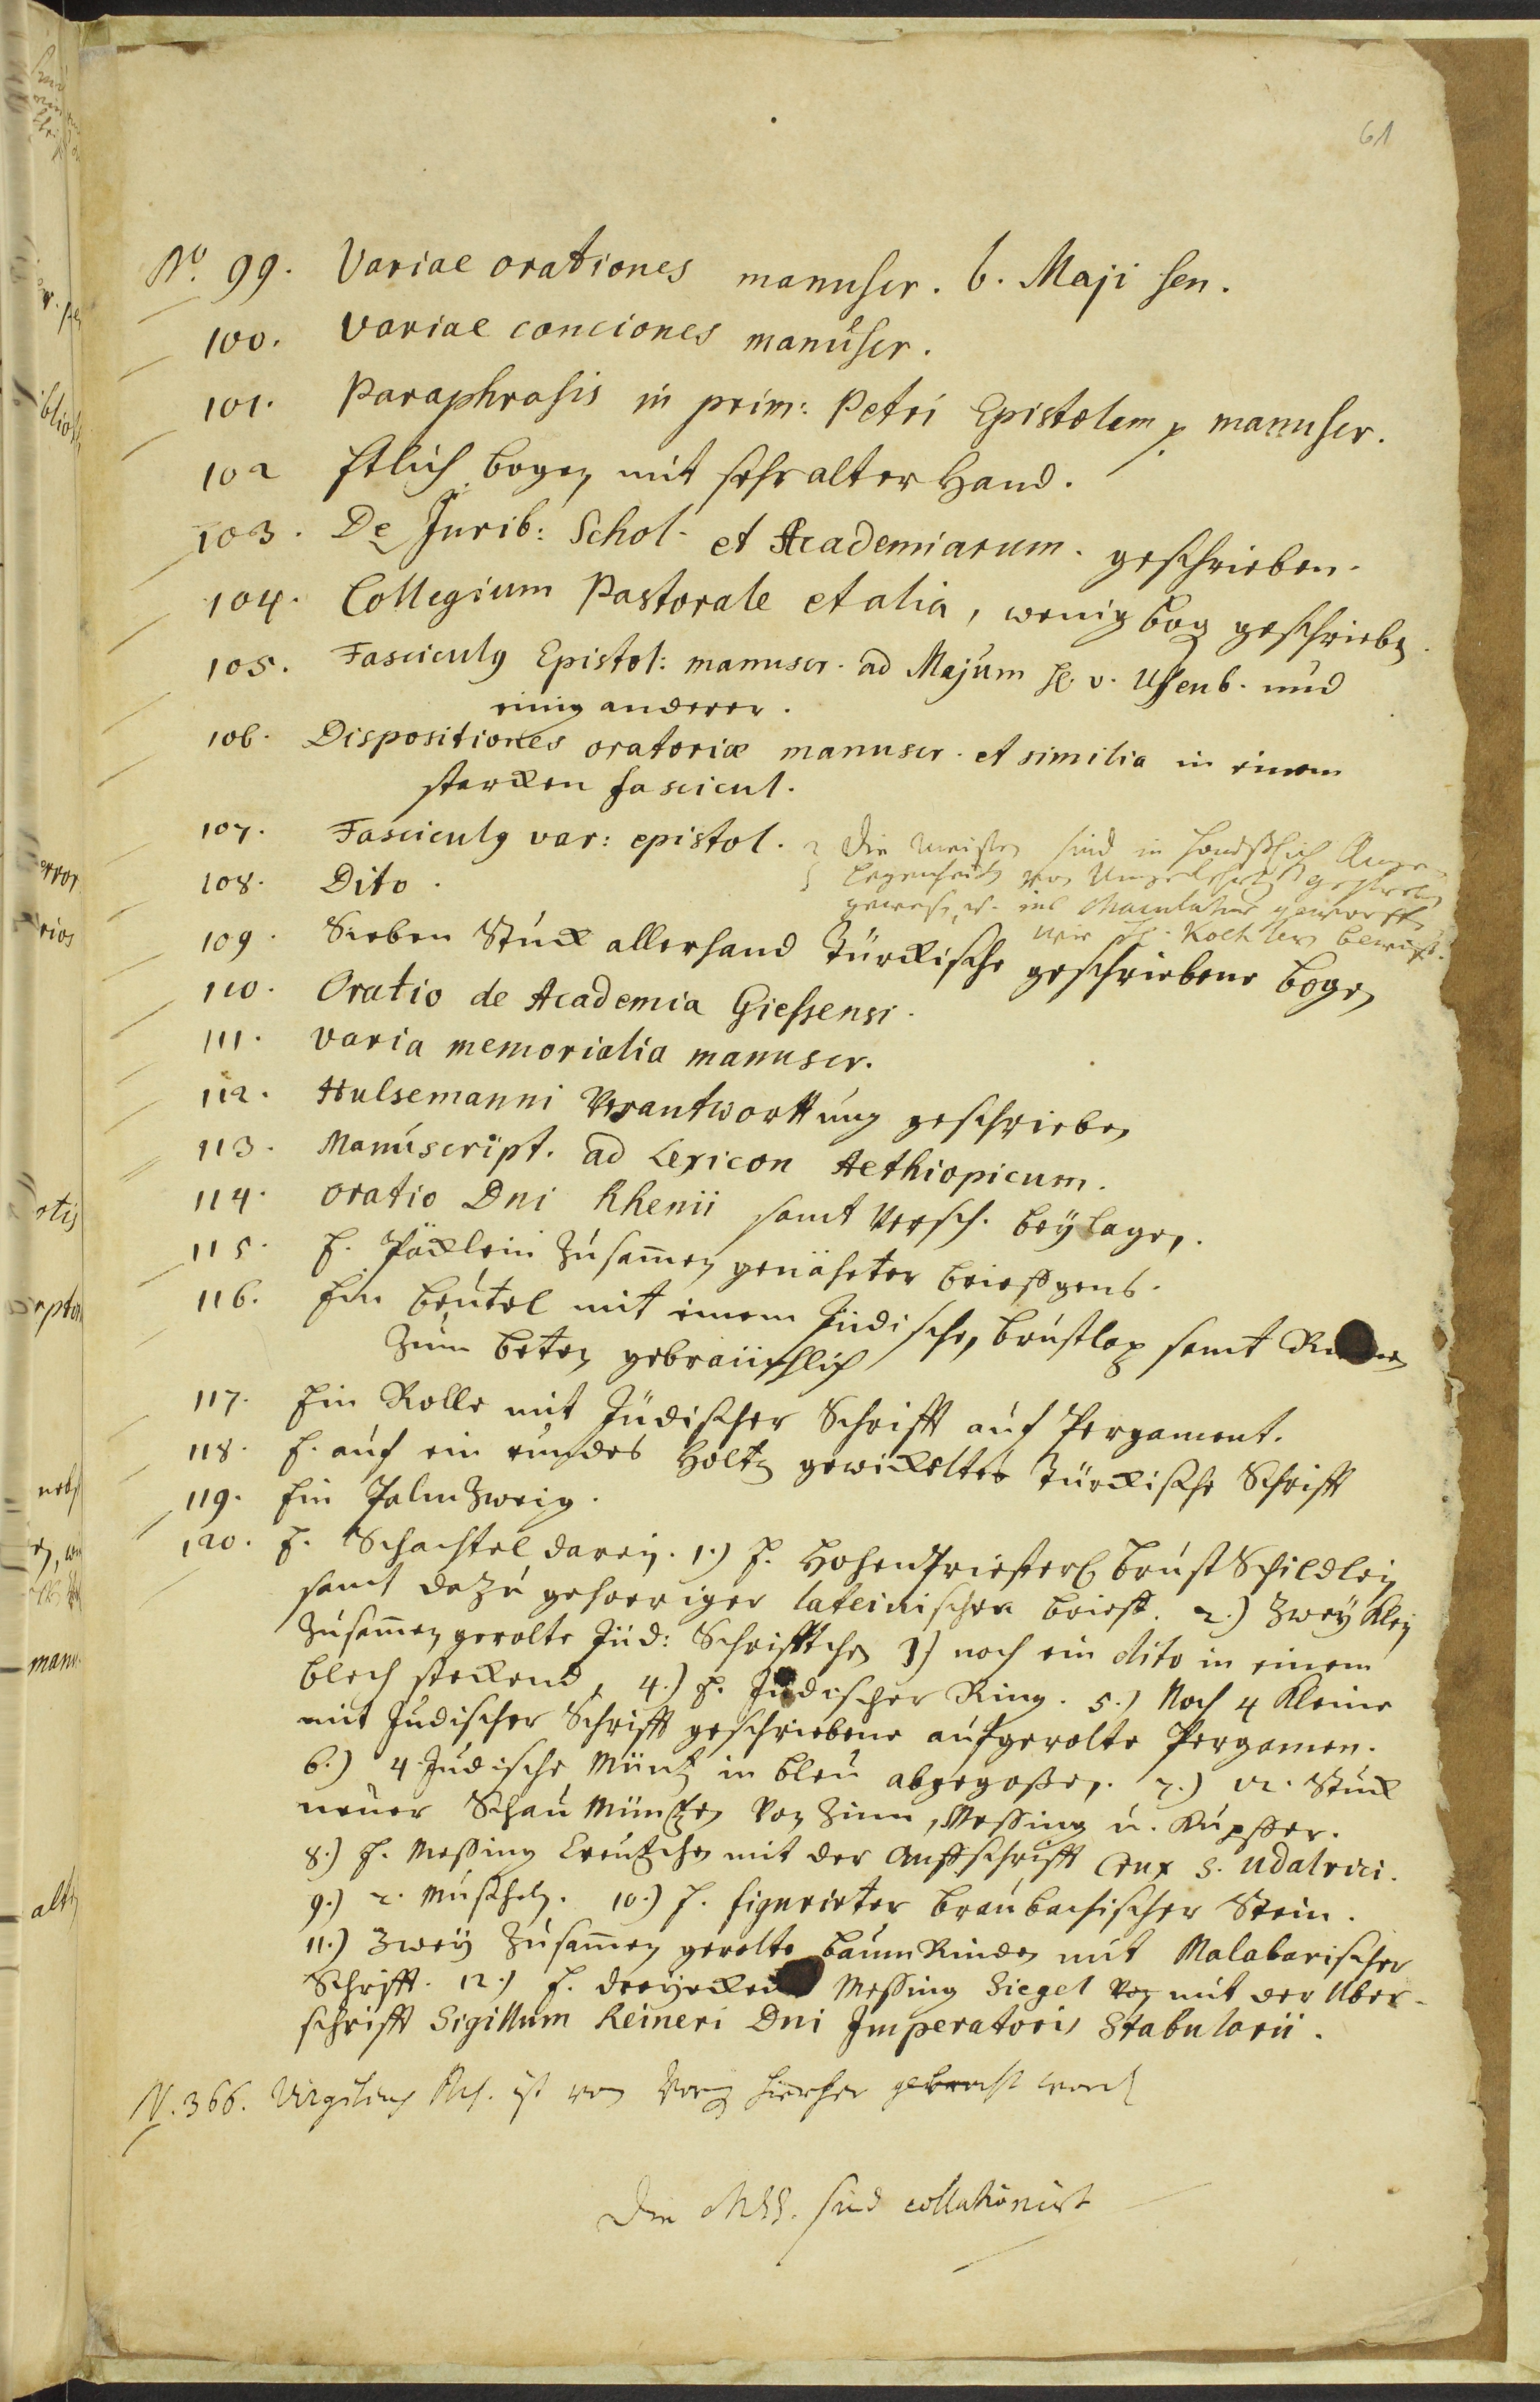 61
No. 99. Variae orationes manuscr. b. Maji sen.
100. Variae conciones manuscr.
101. Paraphrasis in prim: Petri Epistolam p manuscr.
102 Etlich bogen mit sehr alter Hand.
103. De Jurib: Schol. et Academiarum. geschrieben.
104. Collegium Pastorale et alia, wenig bog geschrieben.
105. Fasciculus Epistol: manuscr. ad Majum H. v. Uffenb. und
einig anderer.
106. Dispositiones oratoriæ manuscr. et similia in einem
starcken fascicul.
107. Fasciculus var: epistol. die meisten sind in
108. Dito. von
gewesen, u. ins Maculatur geworffen
wie H. Koch
109. Sieben Stück allerhand Türckische geschriebene bogen
110. Oratio de Academia Giessensi.
111. Varia memorialia manuscr.
112. Hulsemanni Verantworttung geschrieben
113. Manuscript. ad Lexicon Aethiopicum.
114. Oratio Dni Rhenii samt versch. beylagen.
115. E. Päcklein zusam̅en genäheter briefgens.
116. Ein beutel mit einem Jüdischen brustlap samt
zum beten gebräuchlich
117. Ein Rolle mit Jüdischer Schrifft auf Pergament.
118. E. auf ein rundes Holtz gewickelte Türckische Schrifft
119. Ein Palmzweig.
120. E. Schachtel darin. 1.) E. HohenPriesterl brust Schildlein
samt dazu gehoeriger lateinischen brieff. 2.) Zwey klein
zusam̅en gerolte Jüd: Schrifftchen 3) noch ein dito in einem
blech steckend, 4.) E. Jüdischer Ring. 5.) Noch 4 kleine
mit Judischer Schrifft geschriebene aufgerolte Pergamen.
6.) 4 Judische Müntz in bleu abgegoßen. 7.) 12. Stück
neuer Schau Müntzen von Zinn, Messing u. Kupffer.
8.) E. Messing Creutzchen mit der Auffschrifft Crux S. Udalrici.
9.) 2. Muscheln. 10.) E. figurirter braubachischer Stein.
11.) Zwey zusam̅en gerolte baum Rinden mit Malabarischer
Schrifft. 12.) E. Messing Siegel von mit der Uber-
schrifft Sigillum Reineri Dni Imperatoris Stabularii.
N. 366. Virgilius Msc. ist von hierher gebracht word
Die MSS. sind collationirt